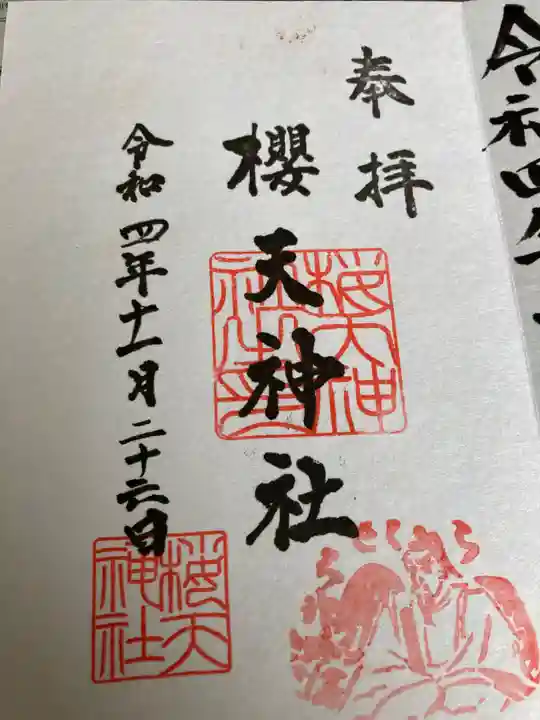 令和四年
奉拝
櫻天神社
令和四年十一月二十六日
桜天神
社之印
桜天
神社
さくら